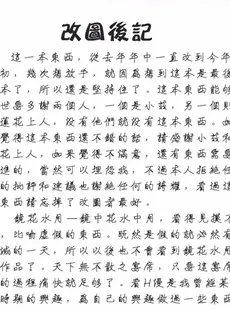 改圖後記
這一本東西，從去年年中一直改到今年
初，幾次落放手，就因為落到這本是最後
本了，所以還是堅持住了。這本東西能夠
世要多謝兩個人，一個是小茲，另一個則
蓮花上人，沒有他們就沒有這本東西。如
覺得這本東西還不錯的話，請感謝小茲和
花上人，如果覺得不滿意，還有東西需要
進的，當然可以埋怨我，不過本人拒絕任
的批評和建議也謝絕任何的誇耀，看過這
東西請忘掉了改圖者最好。
鏡花水月—鏡中花水中月，看得見摸不
，比喻虛假的東西。既然是假的就必然有
滅的一天，所以以後也不會看到鏡花水月
作品了。天下無不散之宴席，只要這宴席
的過程痛快就足够了。看H漫是我曾經某
時期的興趣，爲自己的興趣做過一些東西